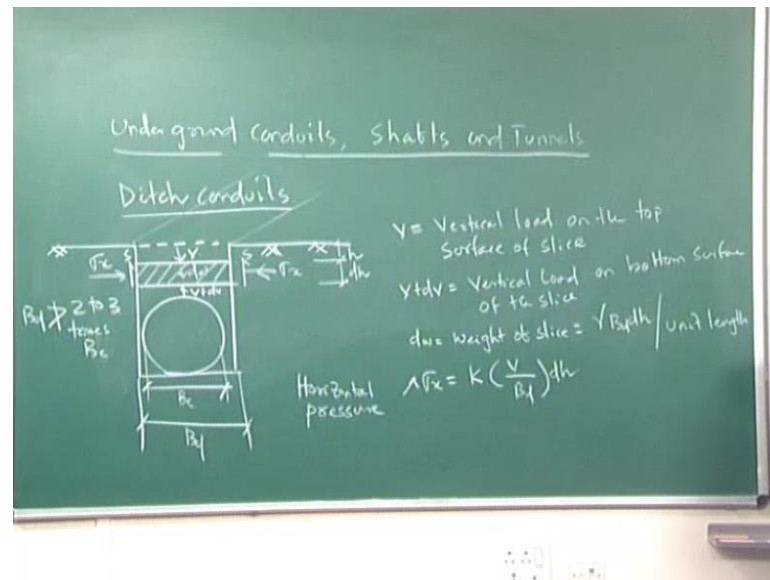 Underground Conduits, Shafts and Tunnels
Ditch Conduits
V
S
S
σx
σx
dw
V+dv
h
dh
Bd ≯ 2 to 3
times
Bc
Bc
Bd
V = Vertical load on the top
surface of slice
V+dv = Vertical Load on bottom surface
of the slice
dw = weight of slice = γBd dh / unit length
Horizontal
pressure
σx = K (V/Bd) dh